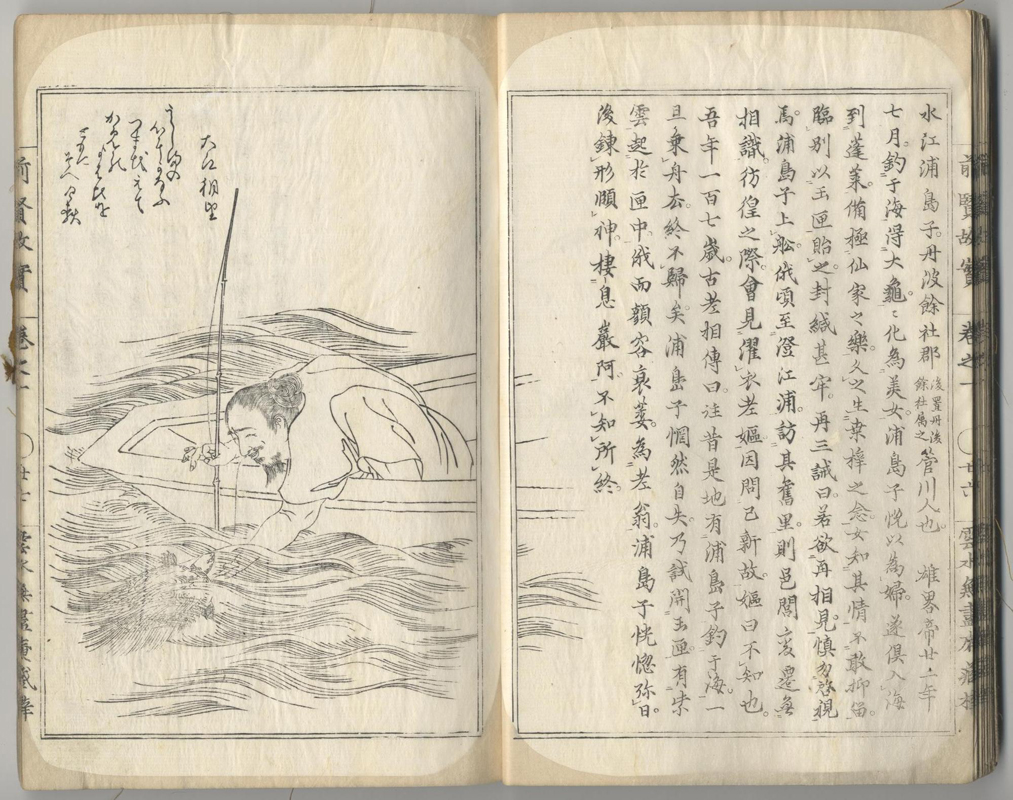 水江浦島子丹波餘社郡後置丹後餘社属之管川人也雄畧帝廿二年
七月釣于海得大龜〻化為美女浦島子悅以為婦遂俱入海
到蓬萊備極仙家之樂久之生桒梓之念女知其情不敢抑留
臨別以玉匣貽之封緘甚牢再三誡曰若欲再相見慎勿啓視
焉浦島子上舩俄頃至澄江浦訪其舊里則邑閭變遷無
相識彷徨之際會見濯衣老嫗因問已新故嫗曰不知也
吾年一百七歲古老相傳曰往昔是地有浦島子釣于海一
旦乗舟去終不歸矣浦島子惘然自失乃試開玉匣有紫
雲起於匣中俄而顏容衰萎為老翁浦島子恍惚弥日
後錬形頤神棲息巖阿不知所終
前賢故實
卷之一
廿六
雲水無盡本藏梓
大江相望
前賢故實
卷之一
廿七